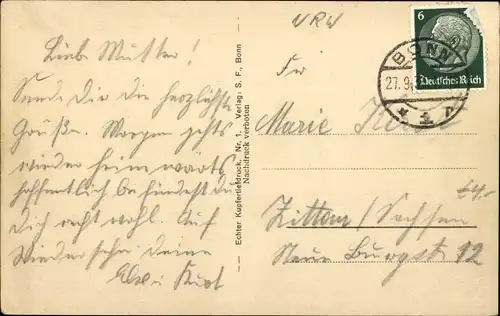 Liebe Mutter!
Sende Dir die herzlichste
Grüße. Morgen gehts
wieder heimwärts
hoffentlich befindest du
Dich recht wohl. Auf
Wiedersehn Deine
Else u Kurt
Echter Kupfertiefdruck, Nr. 1. Verlag: S. F., Bonn
Nachdruck verboten
NRW
6
Deutsches Reich
BONN
27.9.3
Fr
Marie
Zittau/Sachsen
Neue Burgstr 12